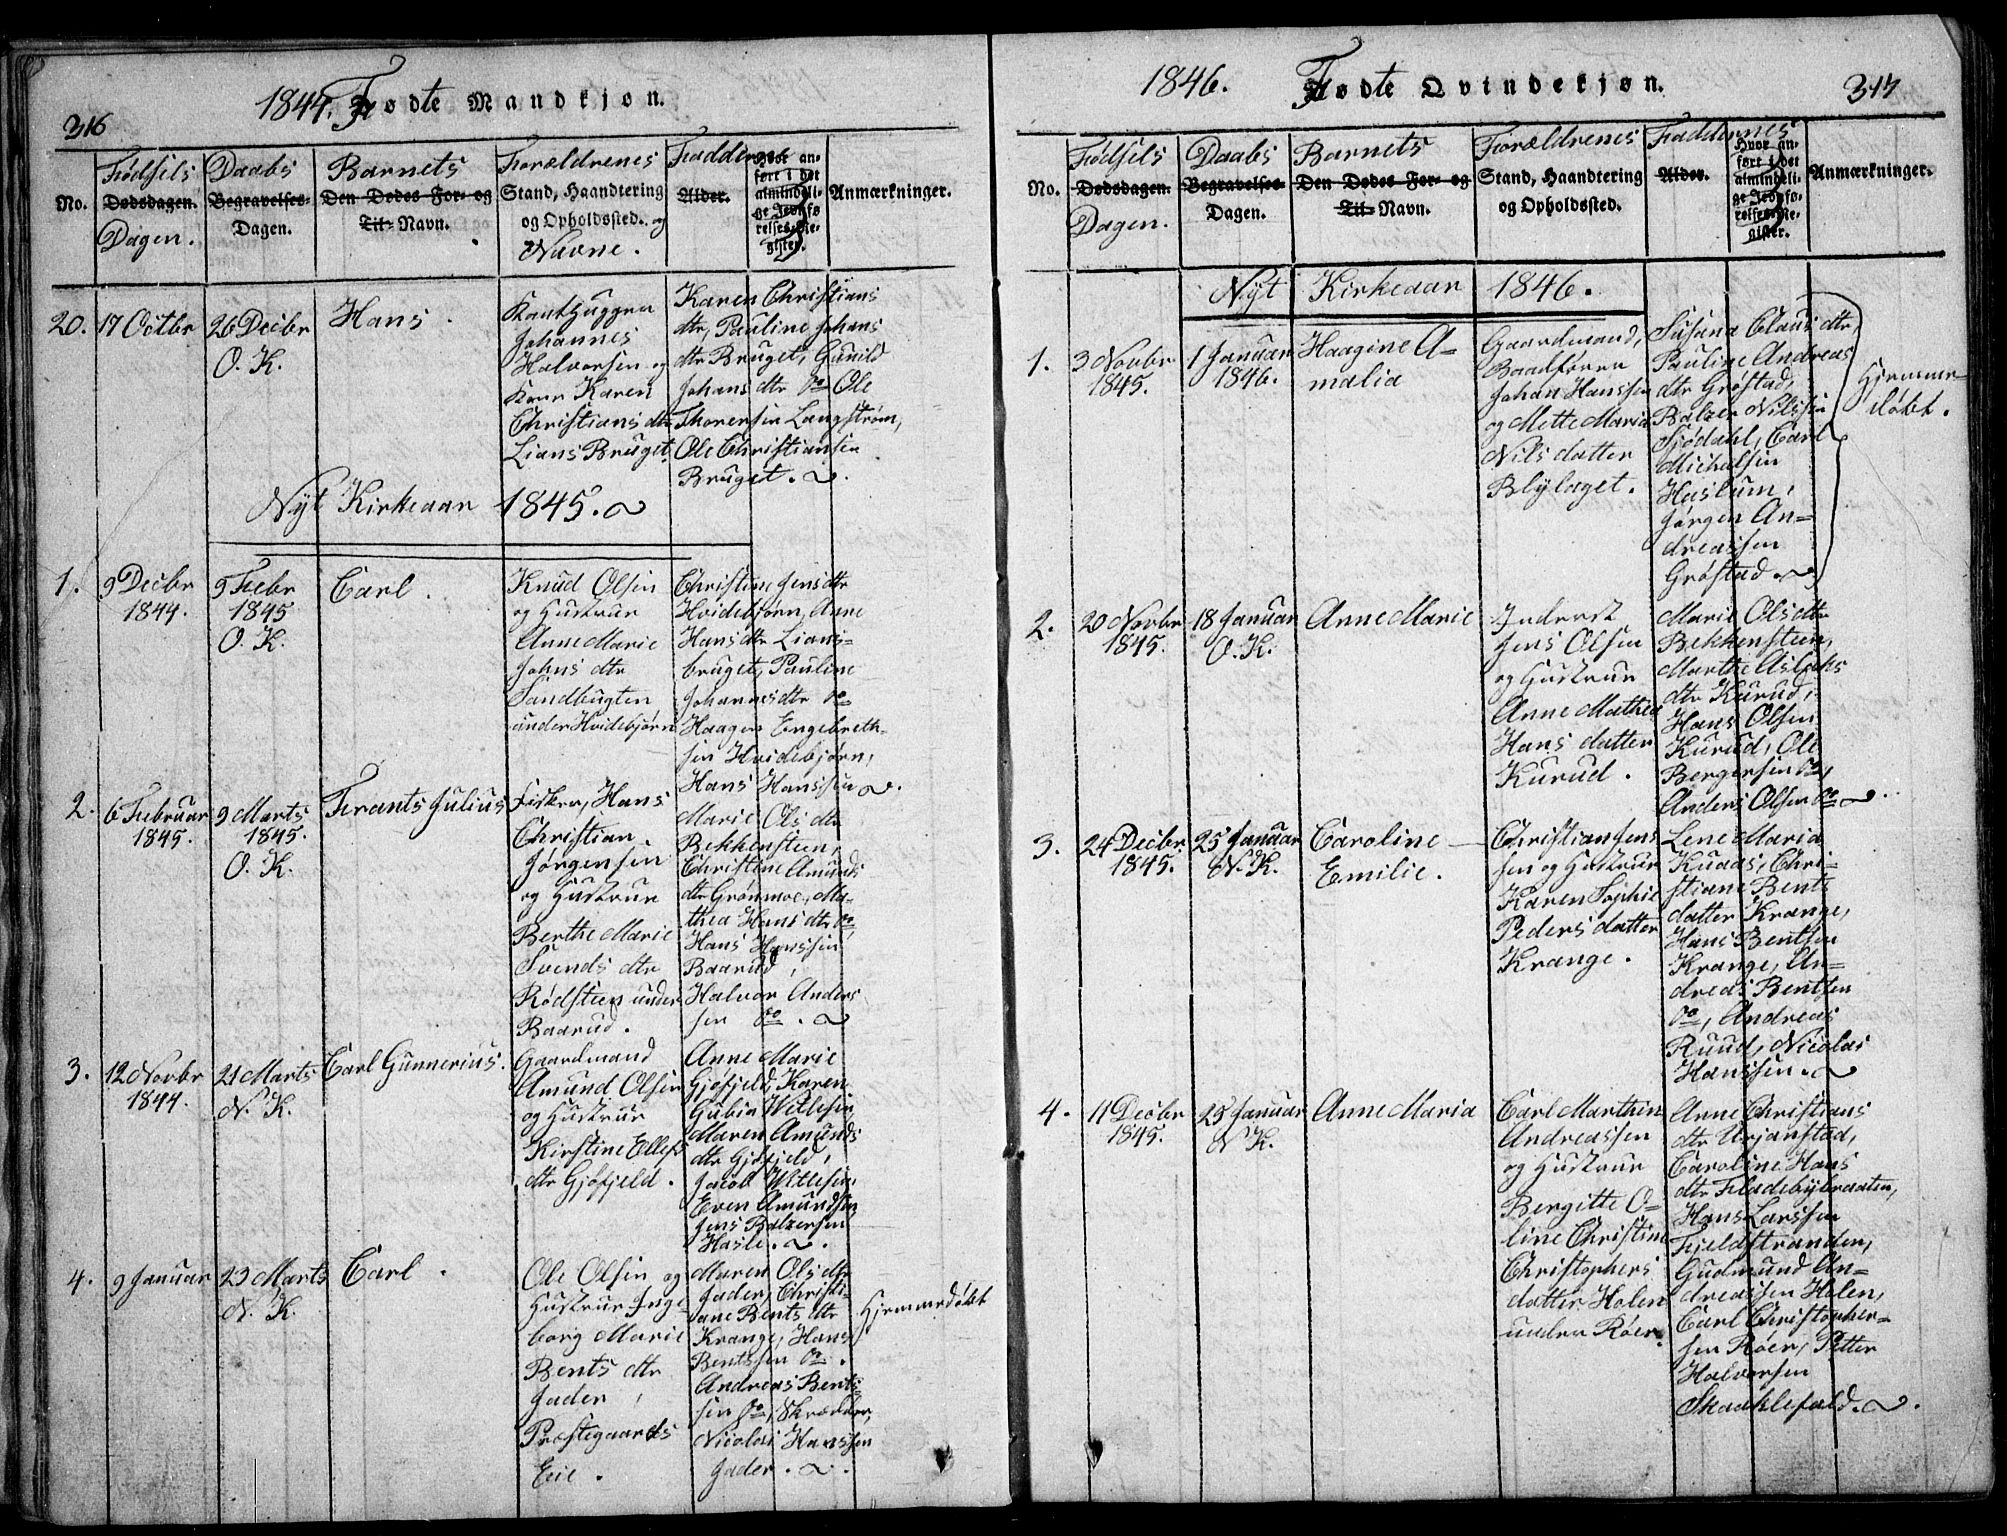 316
1844. Fødte Mandkjøn.
No.
Fødsels
Dødsdagen.
Dagen.
Daabs
Begravelses-
Dagen.
Barnets
Den Dødes For- og
Til- Navn.
Forældrenes
Stand, Haandtering
og Opholdssted. og
Navne.
Faddernes
Alder.
Hvor an-
ført i det
almindeli-
ge Jevnfø-
relses-Re-
gister.
Anmærkninger.
20.
17 Octbr
26 Decbr
O. K.
Hans.
Johannes
Halvorsen og
Kone Karen
Christians dtr
Lians Bruget.
Karen Christians
dtr, Pauline Johans
dtr Bruget, Gunild
Johans dtr do Ole
Thoresen Langstrøm,
Ole Christiansen
Bruget.
Nyt Kirkeaar 1845.
1.
9 Decbr
1844.
9 Febr
1845
O. K.
Carl.
Knud Olsen
og Hustrue
Anne Marie
Johns dtr
Sandbugten
under Hvidebjørn
Christine Jens dtr
Hvidebjørn, Anne
Hans dtr Lians-
bruget, Pauline
Johannes dtr do
Haagen Engebreth-
sen Hvidebjørn,
Hans Hanssen
2.
6 Februar
1845.
9 Marts
1845.
O. K.
Frants Julius
Fisker, Hans
Christian
Jørgensen
og Hustrue
Berthe Marie
Svends dtr
Rødsteen under
Baarud.
Marie Ols dtr
Bekkensteen,
Christine Amunds
dtr Grønmoe, Ma-
thea Hans dtr do,
Hans Hanssen
Baarud,
Halvor Anders
sen do.
3.
12 Novbr
1844.
21 Marts
N. K.
Carl Gunnerius.
Gaardmand
Amund Olsen
og Hustrue
Kirstine Ellefs
dtr Gjøfjeld.
Anne Marie
Gjøfjeld, Karen
Gubia Wetlesen,
Maren Amunds
dtr Gjøfjeld,
Jacob Wetlesen,
Even Amundsen,
Jens Balzersen
Hasle.
4.
9 Januar
23 Marts
N. K.
Carl.
Ole Olsen og
Hustrue Inge
borg Marie
Bents dtr
Jader,
Præstegaards
Eie.
Maren Ols dtr
Jader, Christi-
ane Bents dtr
Krange, Hans
Bentssen do.
Andreas Bents-
sen do, Skrædder,
Nicolai Hanssen
Jader.
Hjemmedøbt
317
1846. Fødte Qvindekjøn.
No.
Fødsels
Dødsdagen.
Dagen.
Daabs
Begravelses-
Dagen.
Barnets
Den Dødes For- og
Til- Navn.
Forældrenes
Stand, Haandtering
og Opholdssted.
Faddernes
Alder.
Hvor an-
ført i det
almindeli-
ge Jevnfø-
relses-Re-
gister.
Anmærkninger.
Nyt Kirkeaar 1846.
1.
3 Novbr
1845.
1 Januar
1846.
Haagine A-
malia
Gaardmand,
Baadfører
Johan Hanssen
og Mette Maria
Nils datter
Blylaget.
Susana Claus dtr,
Pauline Andreas
dtr Grøstad,
Balzer Nilssen
Sjødahl, Carl
Michelsen
Haslum,
Jørgen An-
dreassen
Grøstad.
Hjemme-
døbt.
2.
20 Novbr
1845.
18 Januar
O. K.
Anne Marie
Inderst
Jens Olsen
og Hustrue
Anne Mathea
Hans datter
Kurud.
Marie Ols dtr
Bekkensteen,
Marthe Aslaks
dtr Kurud,
Hans Olsen
Kurud, Ole
Bergersen do,
Anders Olsen do
3.
24 Decbr
1845.
25 Januar
N. K.
Caroline
Emilie.
Christian Jens
sen og Hustrue
Karen Sophie
Peders datter
Krange.
Lene Maria
Kuaas, Chri-
stiane Bents
datter Krange,
Hans Bentsen
Krange, An-
dreas Bentsen
do, Andreas
Ruud, Nicolai
Hanssen.
4.
11 Decbr
1845.
25 Januar
N. K.
Anne Maria
Carl Marthin
Andreassen
og Hustrue
Bergitte O-
line Christine
Christophers
datter Holen
under Røer.
Anne Christians
dtr Urjanstad,
Caroline Hans
dtr Fladebybraaten,
Hans Larssen
Fjeldstranden,
Gudmund An-
dreassen Holen,
Carl Christopher-
sen Røer, Petter
Halvorsen
Skaaklefald.